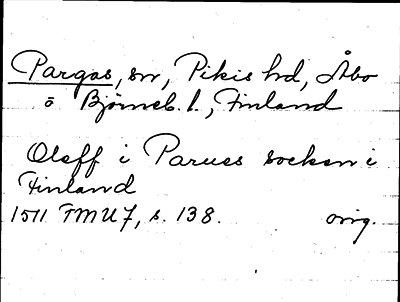 Pargas, sn, Pikis hd, Åbo
o Björneb. l., Finland
Oleff i Parues socken i
Finland
1511 FMU 7, s. 138. orig.